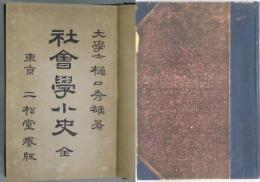 文學士 樋口秀雄著
社會學小史 全
東京 二松堂藏版